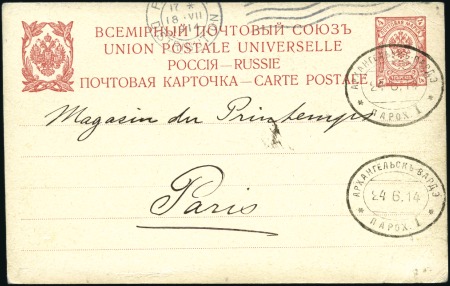 18 · VII
ВСЕМІРНЫЙ ПОЧТОВЫЙ СОЮЗЪ
UNION POSTALE UNIVERSELLE
РОССІЯ—RUSSIE
ПОЧТОВАЯ КАРТОЧКА—CARTE POSTALE
24 6.14
* ПАРОХ. 1 *
Magasin du Printemps
Paris
АРХАНГЕЛЬСКЪ-ВАРДЭ
24 6.14
* ПАРОХ. 1 *